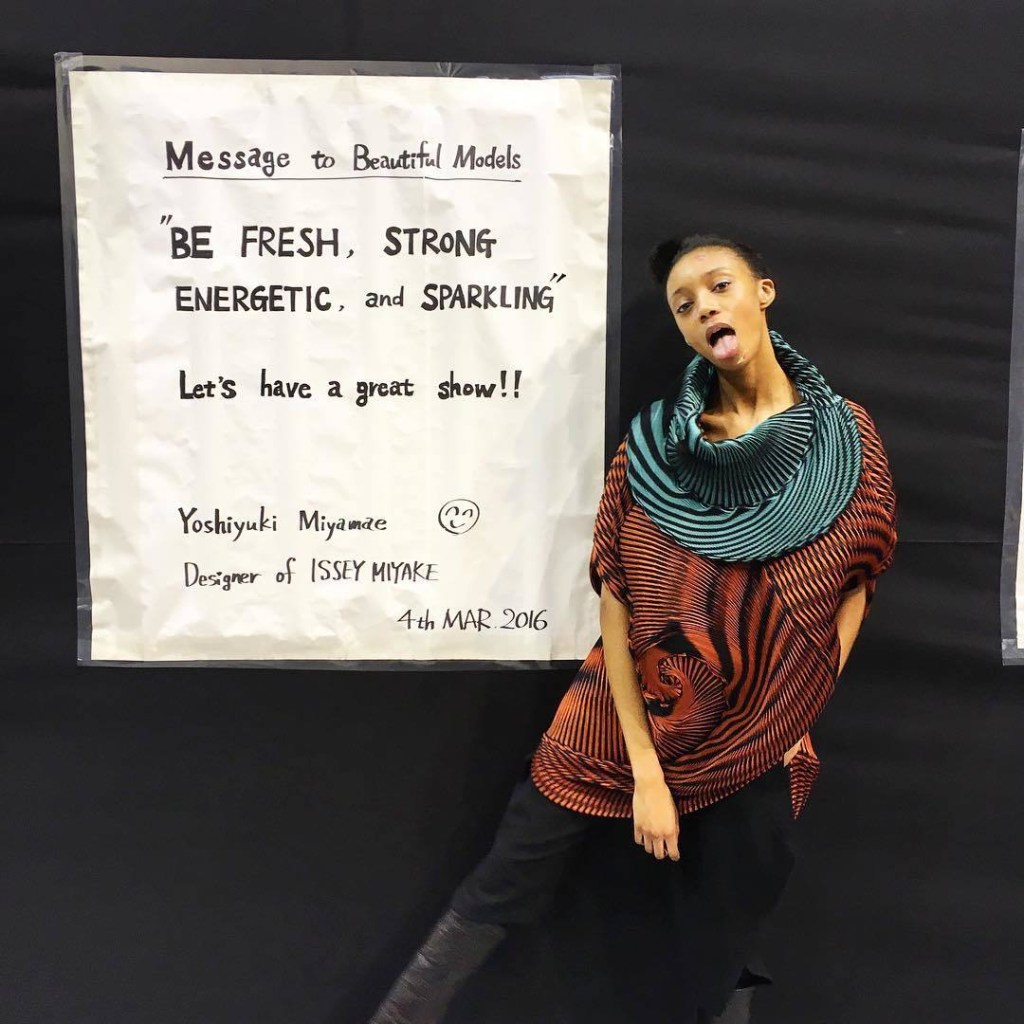 Message to Beautiful Models
"BE FRESH, STRONG
ENERGETIC, and SPARKLING"
Let's have a great show!!
Yoshiyuki Miyamae
Designer of ISSEY MIYAKE
4th MAR. 2016